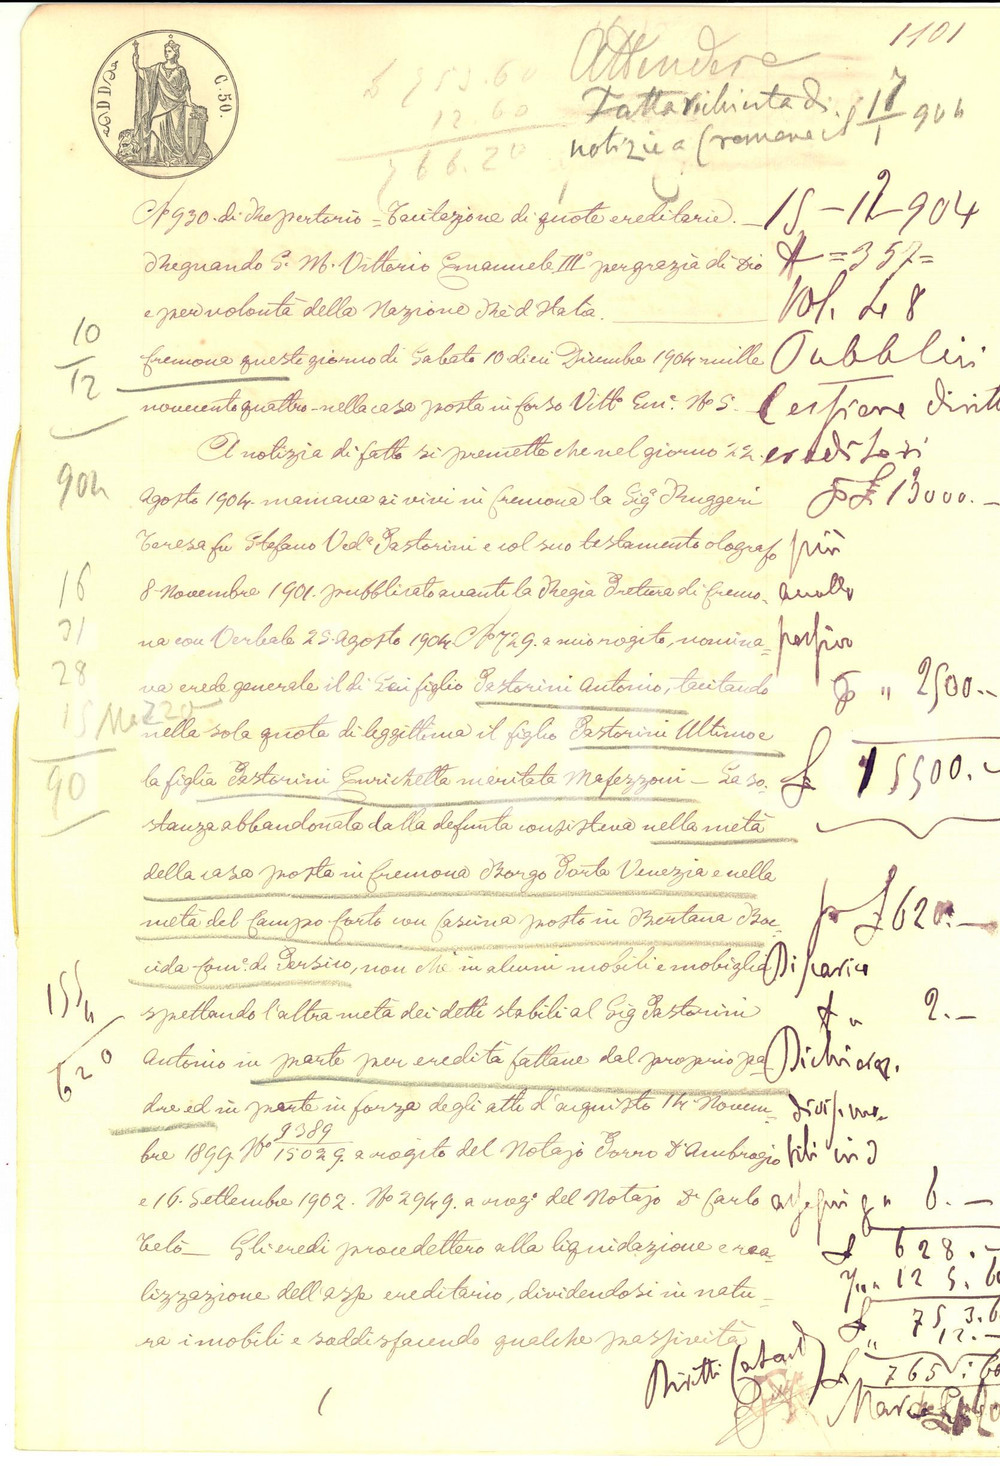 1101
C. 50.
Attendere
Fatta richiesta di
notizie a Cremona il 17/1 904
753.60
12.60
766.20
N 930. di Repertorio = Tacitazione di quote ereditarie.
Regnando S. M. Vittorio Emanuele III° per grazia di Dio
e per volontà della Nazione Rè d'Italia.
Cremona questo giorno di Sabato 10 dieci Dicembre 1904 mille
novecentoquattro - nella casa posta in Corso Vitt° Em.e N° 5.
A notizia di fatto si premette che nel giorno 22.
Agosto 1904. mancava ai vivi in Cremona la Sig.a Ruggeri
Teresa fu Stefano Ved.a Pastorini e col suo testamento olografo
8 Novembre 1901. pubblicato avanti la Regia Pretura di Cremo-
na con Verbale 25. Agosto 1904 N° 729. a mio rogito, nomina-
va erede generale il di Lei figlio Pastorini Antonio, tacitando
nella sola quota di leggittima il figlio Pastorini Ultimo e
la figlia Pastorini Enrichetta maritata Mafezzoni - La so-
stanza abbandonata dalla defunta consisteva nella metà
della casa posta in Cremona Borgo Porta Venezia e nella
metà del Campo Corto con Cascina posto in Bertana Buc-
cida Com.e di Persico, non chè in alcuni mobili e mobiglia
spettando l'altra metà dei detti stabili al Sig Pastorini
Antonio in parte per eredità fattane dal proprio pa-
dre ed in parte in forza degli atti d'acquisto 14 Novem-
bre 1899. N° 9389/15029. a rogito del Notajo Porro Dr Ambrogio
e 16. Settembre 1902. N° 2949. a rog° del Notajo Dr Carlo
Telò - Gli eredi procedettero alla liquidazione e rea-
lizzazione dell'asse ereditario, dividendosi in natu-
ra i mobili e soddisfacendo qualche passività
15-12-904
= 357 =
Vol. 48
diritti
ereditari
£ 13000.-
più
accollo
passivo
" 2500.-
£ 15500.-
£ 620.-
2.-
Dichiaraz.
6.-
£ 628.-
125.60
£ 753.60
12.-
£ 765.60
Diritti
10
12
904
16
31
28
15
90
155
620